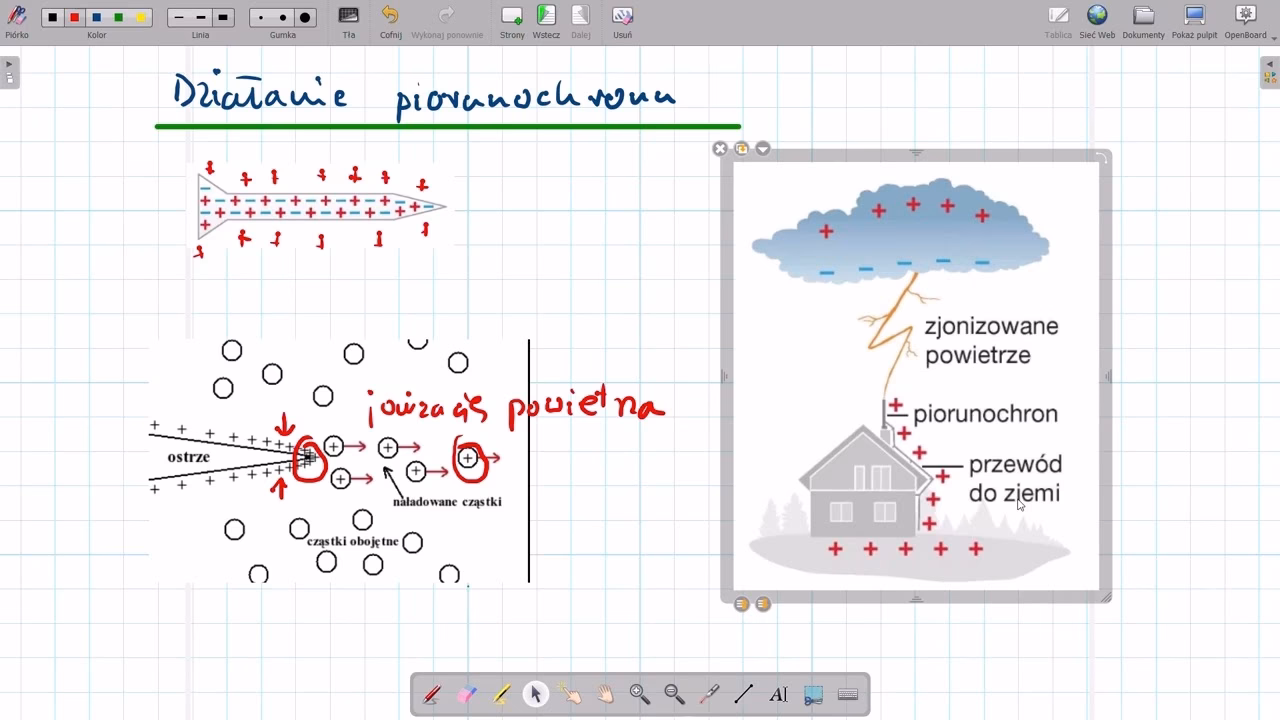 Piórko
Kolor
Linia
Gumka
Tła
Cofnij
Wykonaj ponownie
Strony
Wstecz
Dalej
Usuń
Tablica
Sieć Web
Dokumenty
Pokaż pulpit
OpenBoard
Działanie piorunochronu
zjonizowane
powietrze
piorunochron
przewód
do ziemi
jonizacja powietrza
ostrze
naładowane cząstki
cząstki obojętne